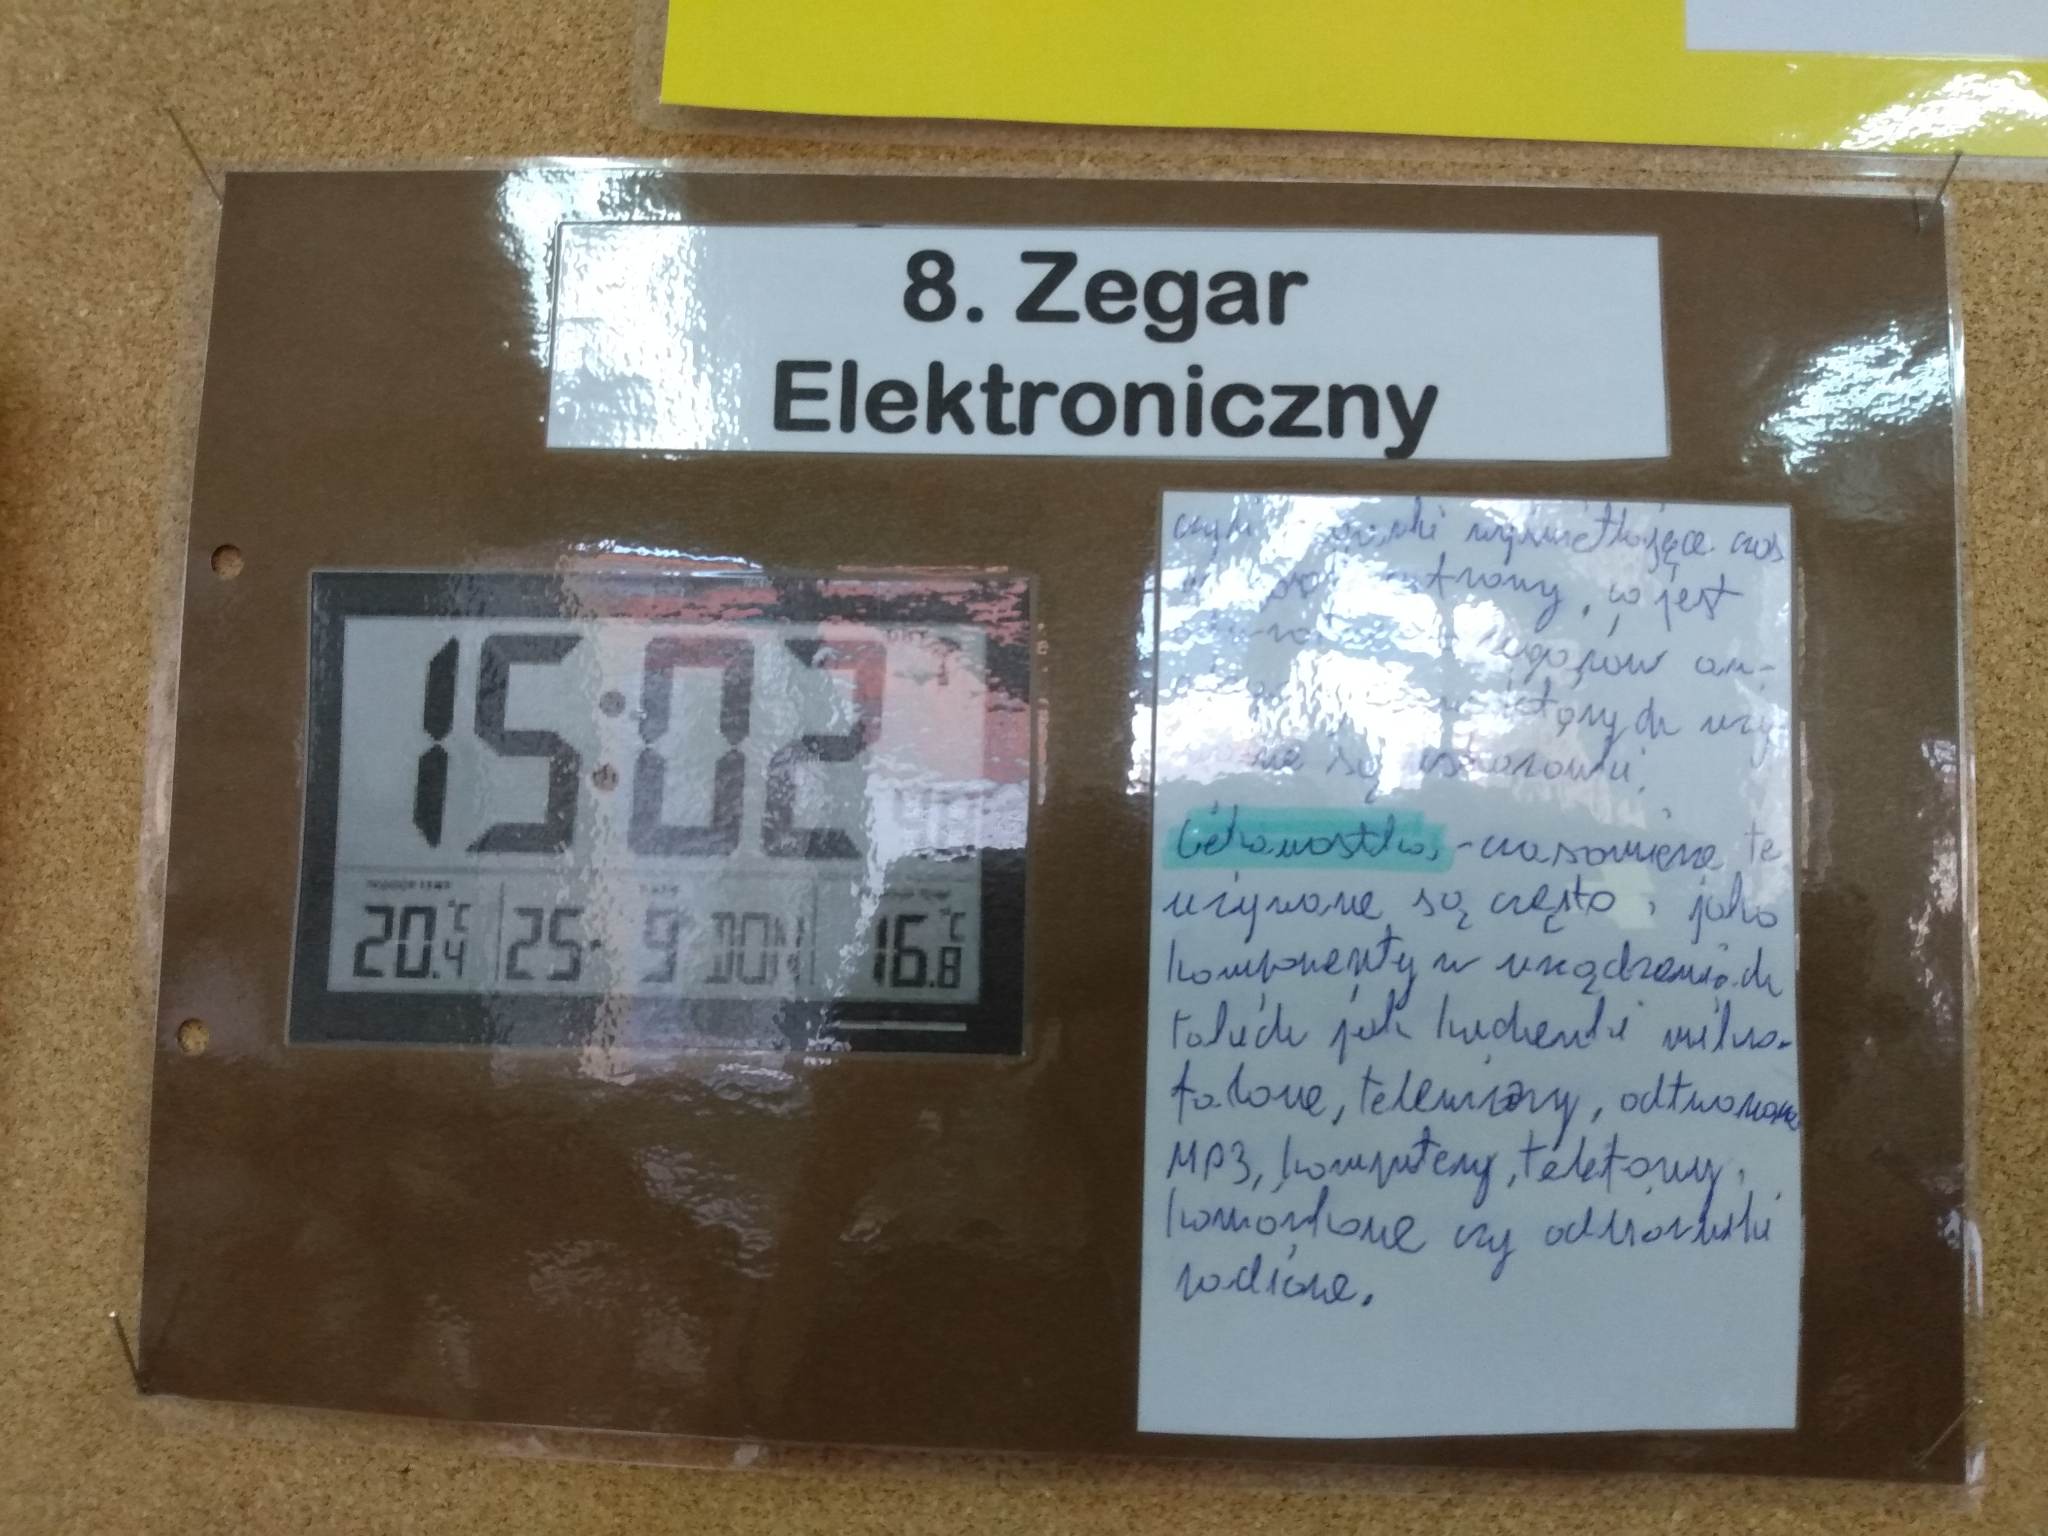 8. Zegar
Elektroniczny
15:02
20.4 °C
25. 9 DON
16.8 °C
czyli wyświetlające czas
, co jest
zegarów an-
których uży
są wskazówki.
Ciekawostka, - czasomierze te
używane są często, jako
komponenty w urządzeniach
takich jak kuchenki mikro-
falowe, telewizory, odtwarzacze
MP3, komputery, telefony,
komórkowe czy odbiorniki
radiowe.